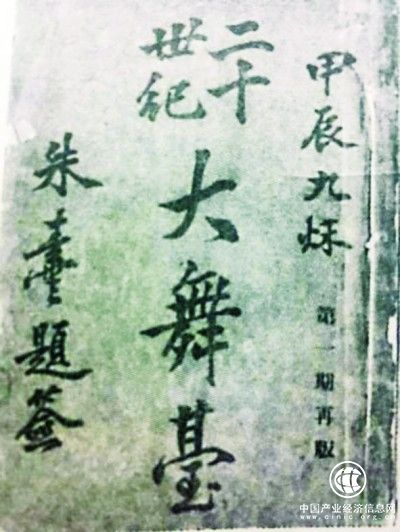 甲辰九秌
第一期再版
二十
世紀
大舞臺
朱題簽
中国产业经济信息网
www.cinic.org.cn